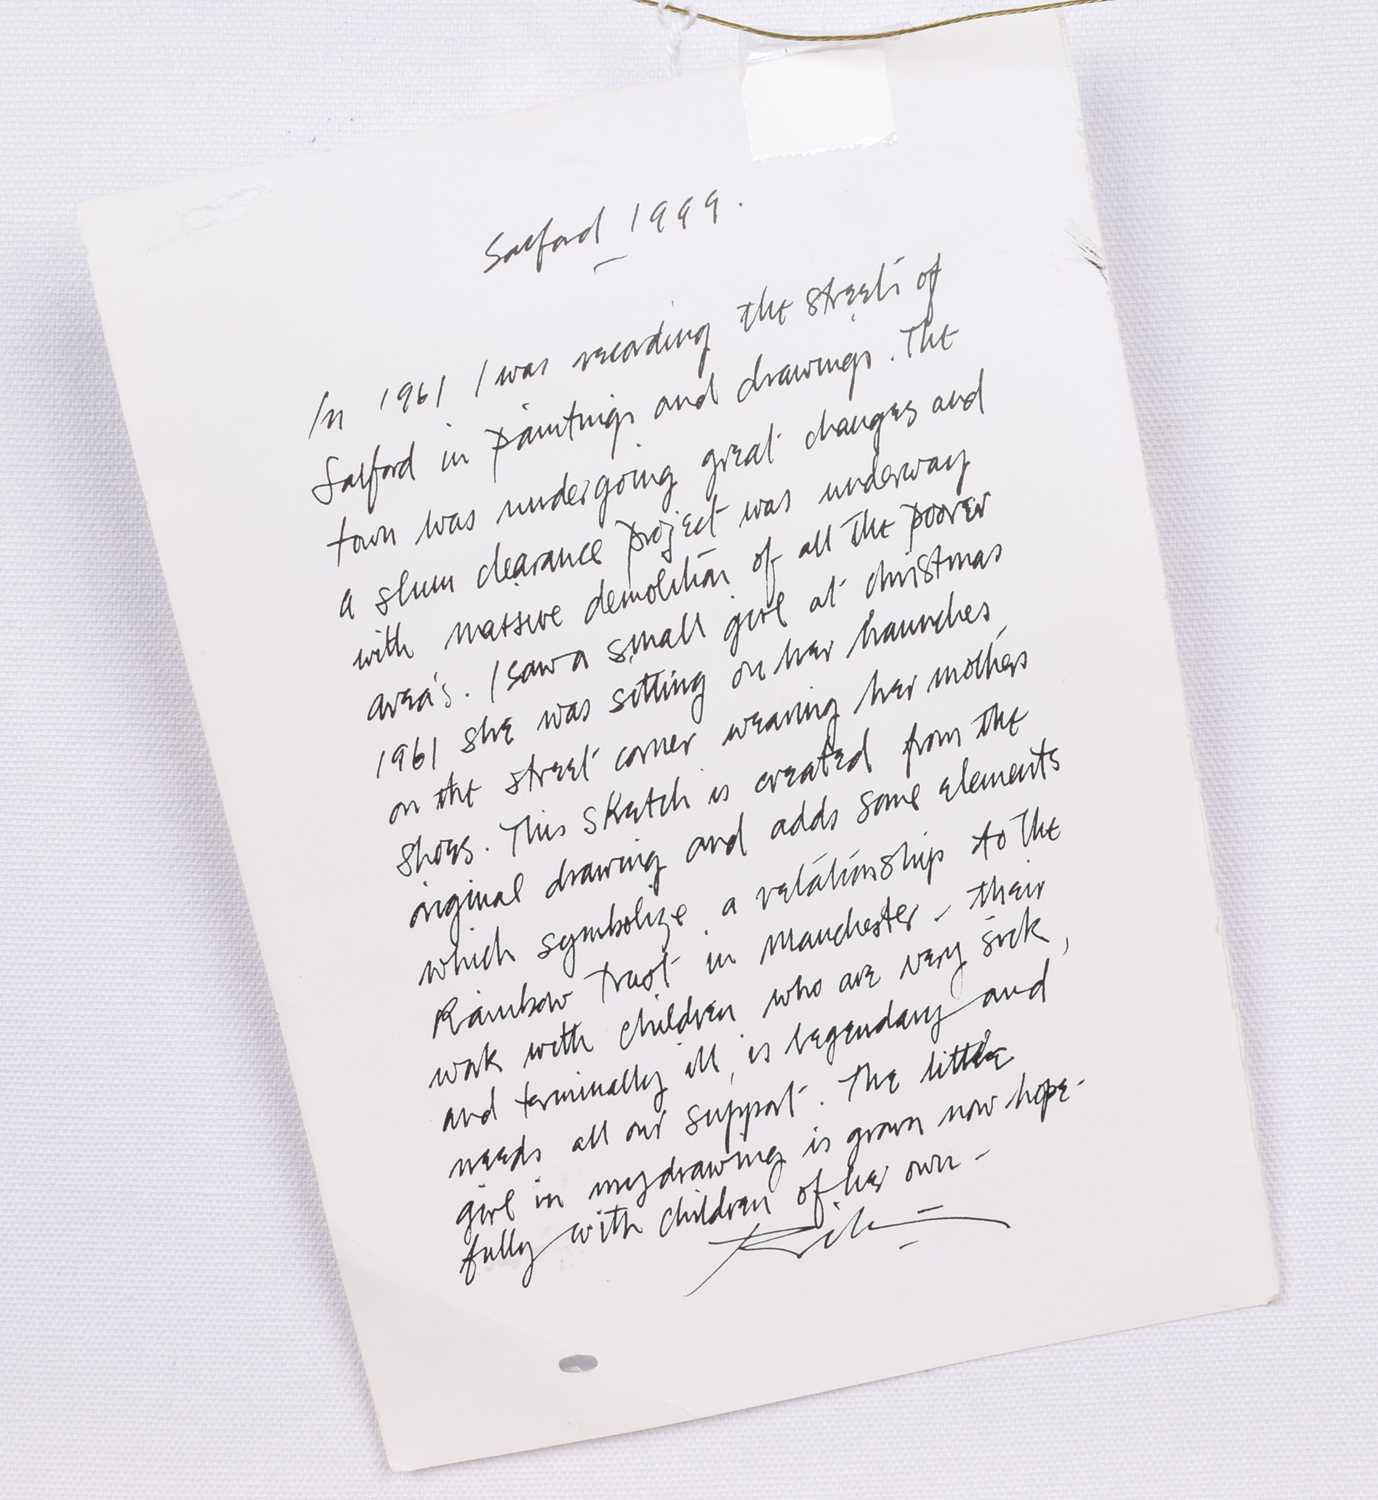 Salford 1999.
In 1961 I was recording the streets of
Salford in paintings and drawings. The
town was undergoing great changes and
a slum clearance project was underway
with massive demolition of all the poorer
area's. I saw a small girl at christmas
1961 she was sitting on her haunches
on the street corner wearing her mothers
shoes. This sketch is created from the
original drawing and adds some elements
which symbolize a relationship to the
Rainbow Trust in Manchester - their
work with children who are very sick,
and terminally ill, is legendary and
needs all our support. The little
girl in my drawing is grown now hope-
fully with children of her own -